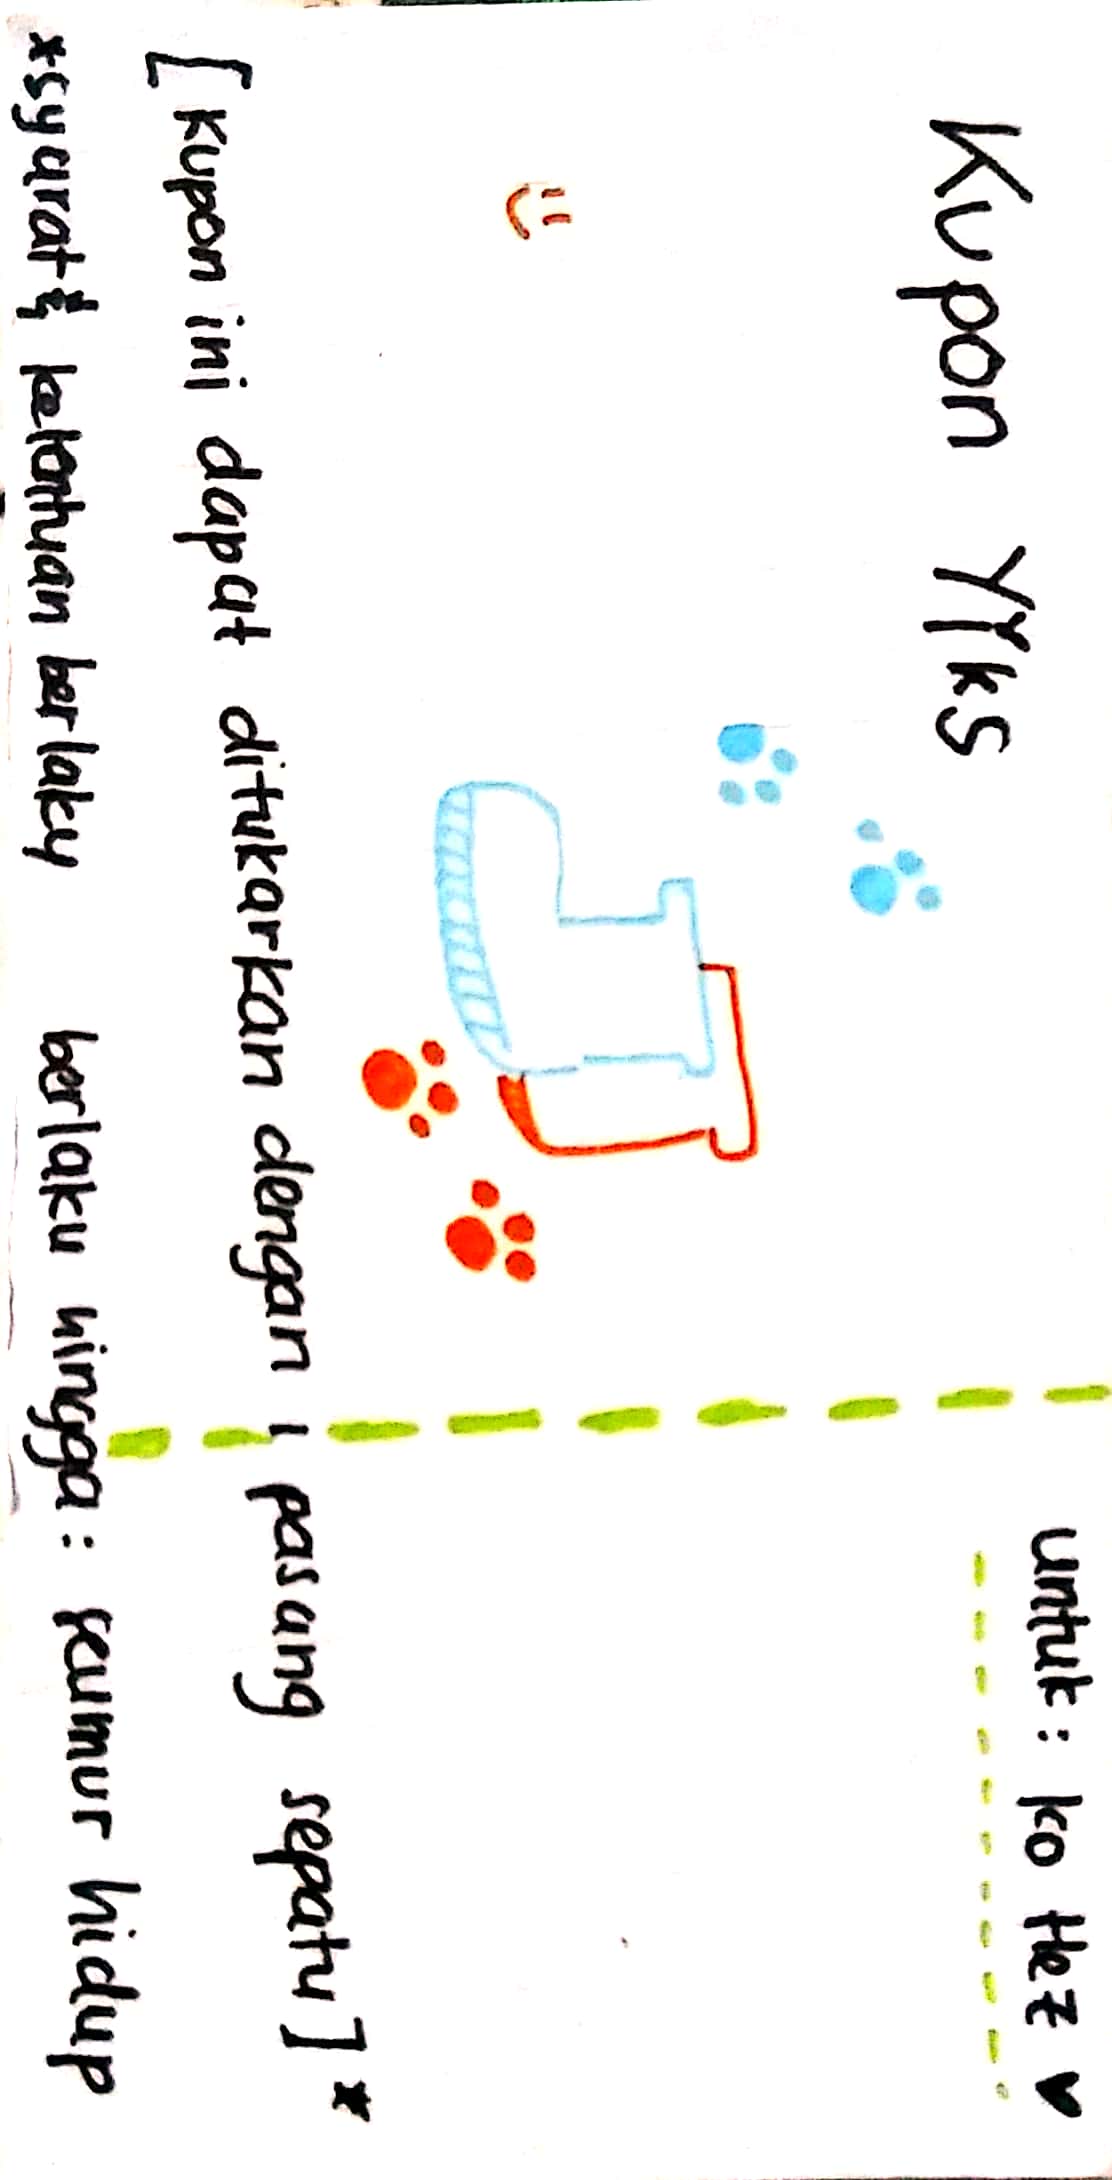 Kupon Yiks
untuk: ko Hez ♥
[Kupon ini dapat ditukarkan dengan 1 pasang sepatu]*
*syarat & ketentuan berlaku
berlaku hingga: seumur hidup